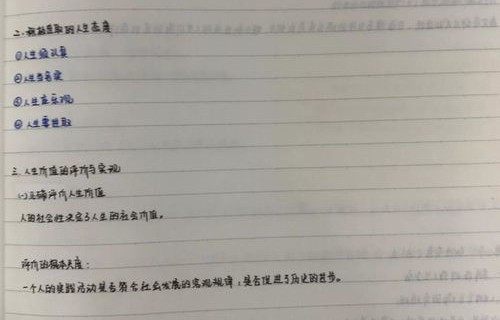 二.积极进取的人生态度
①人生须认真
②人生当务实
③人生应乐观
④人生要进取
三.人生价值的评价与实现
(一)正确评价人生价值
人的社会性决定了人生的社会价值。
评价的根本尺度:
一个人的实践活动是否符合社会发展的客观规律,是否促进了历史的进步。